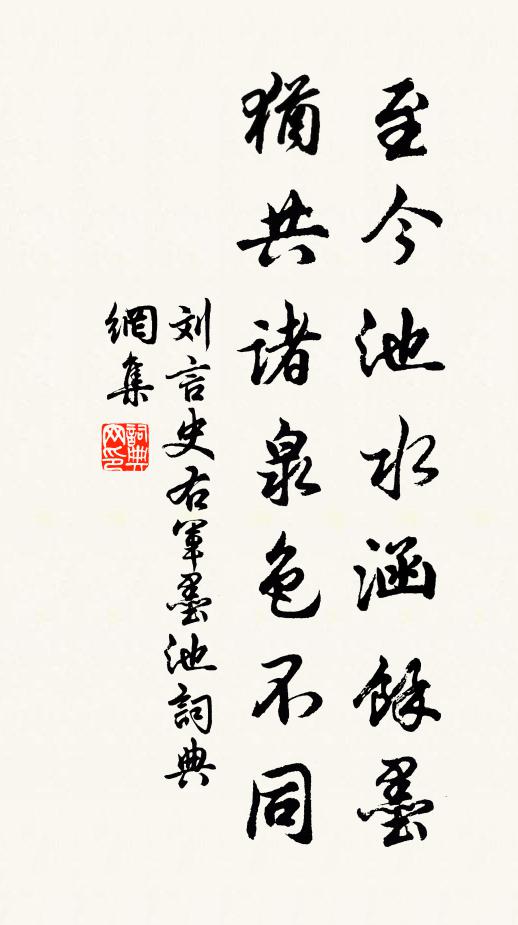 至今池水涵餘墨
猶共諸泉色不同
刘言史右軍墨池詞典
網集
詞典
网印